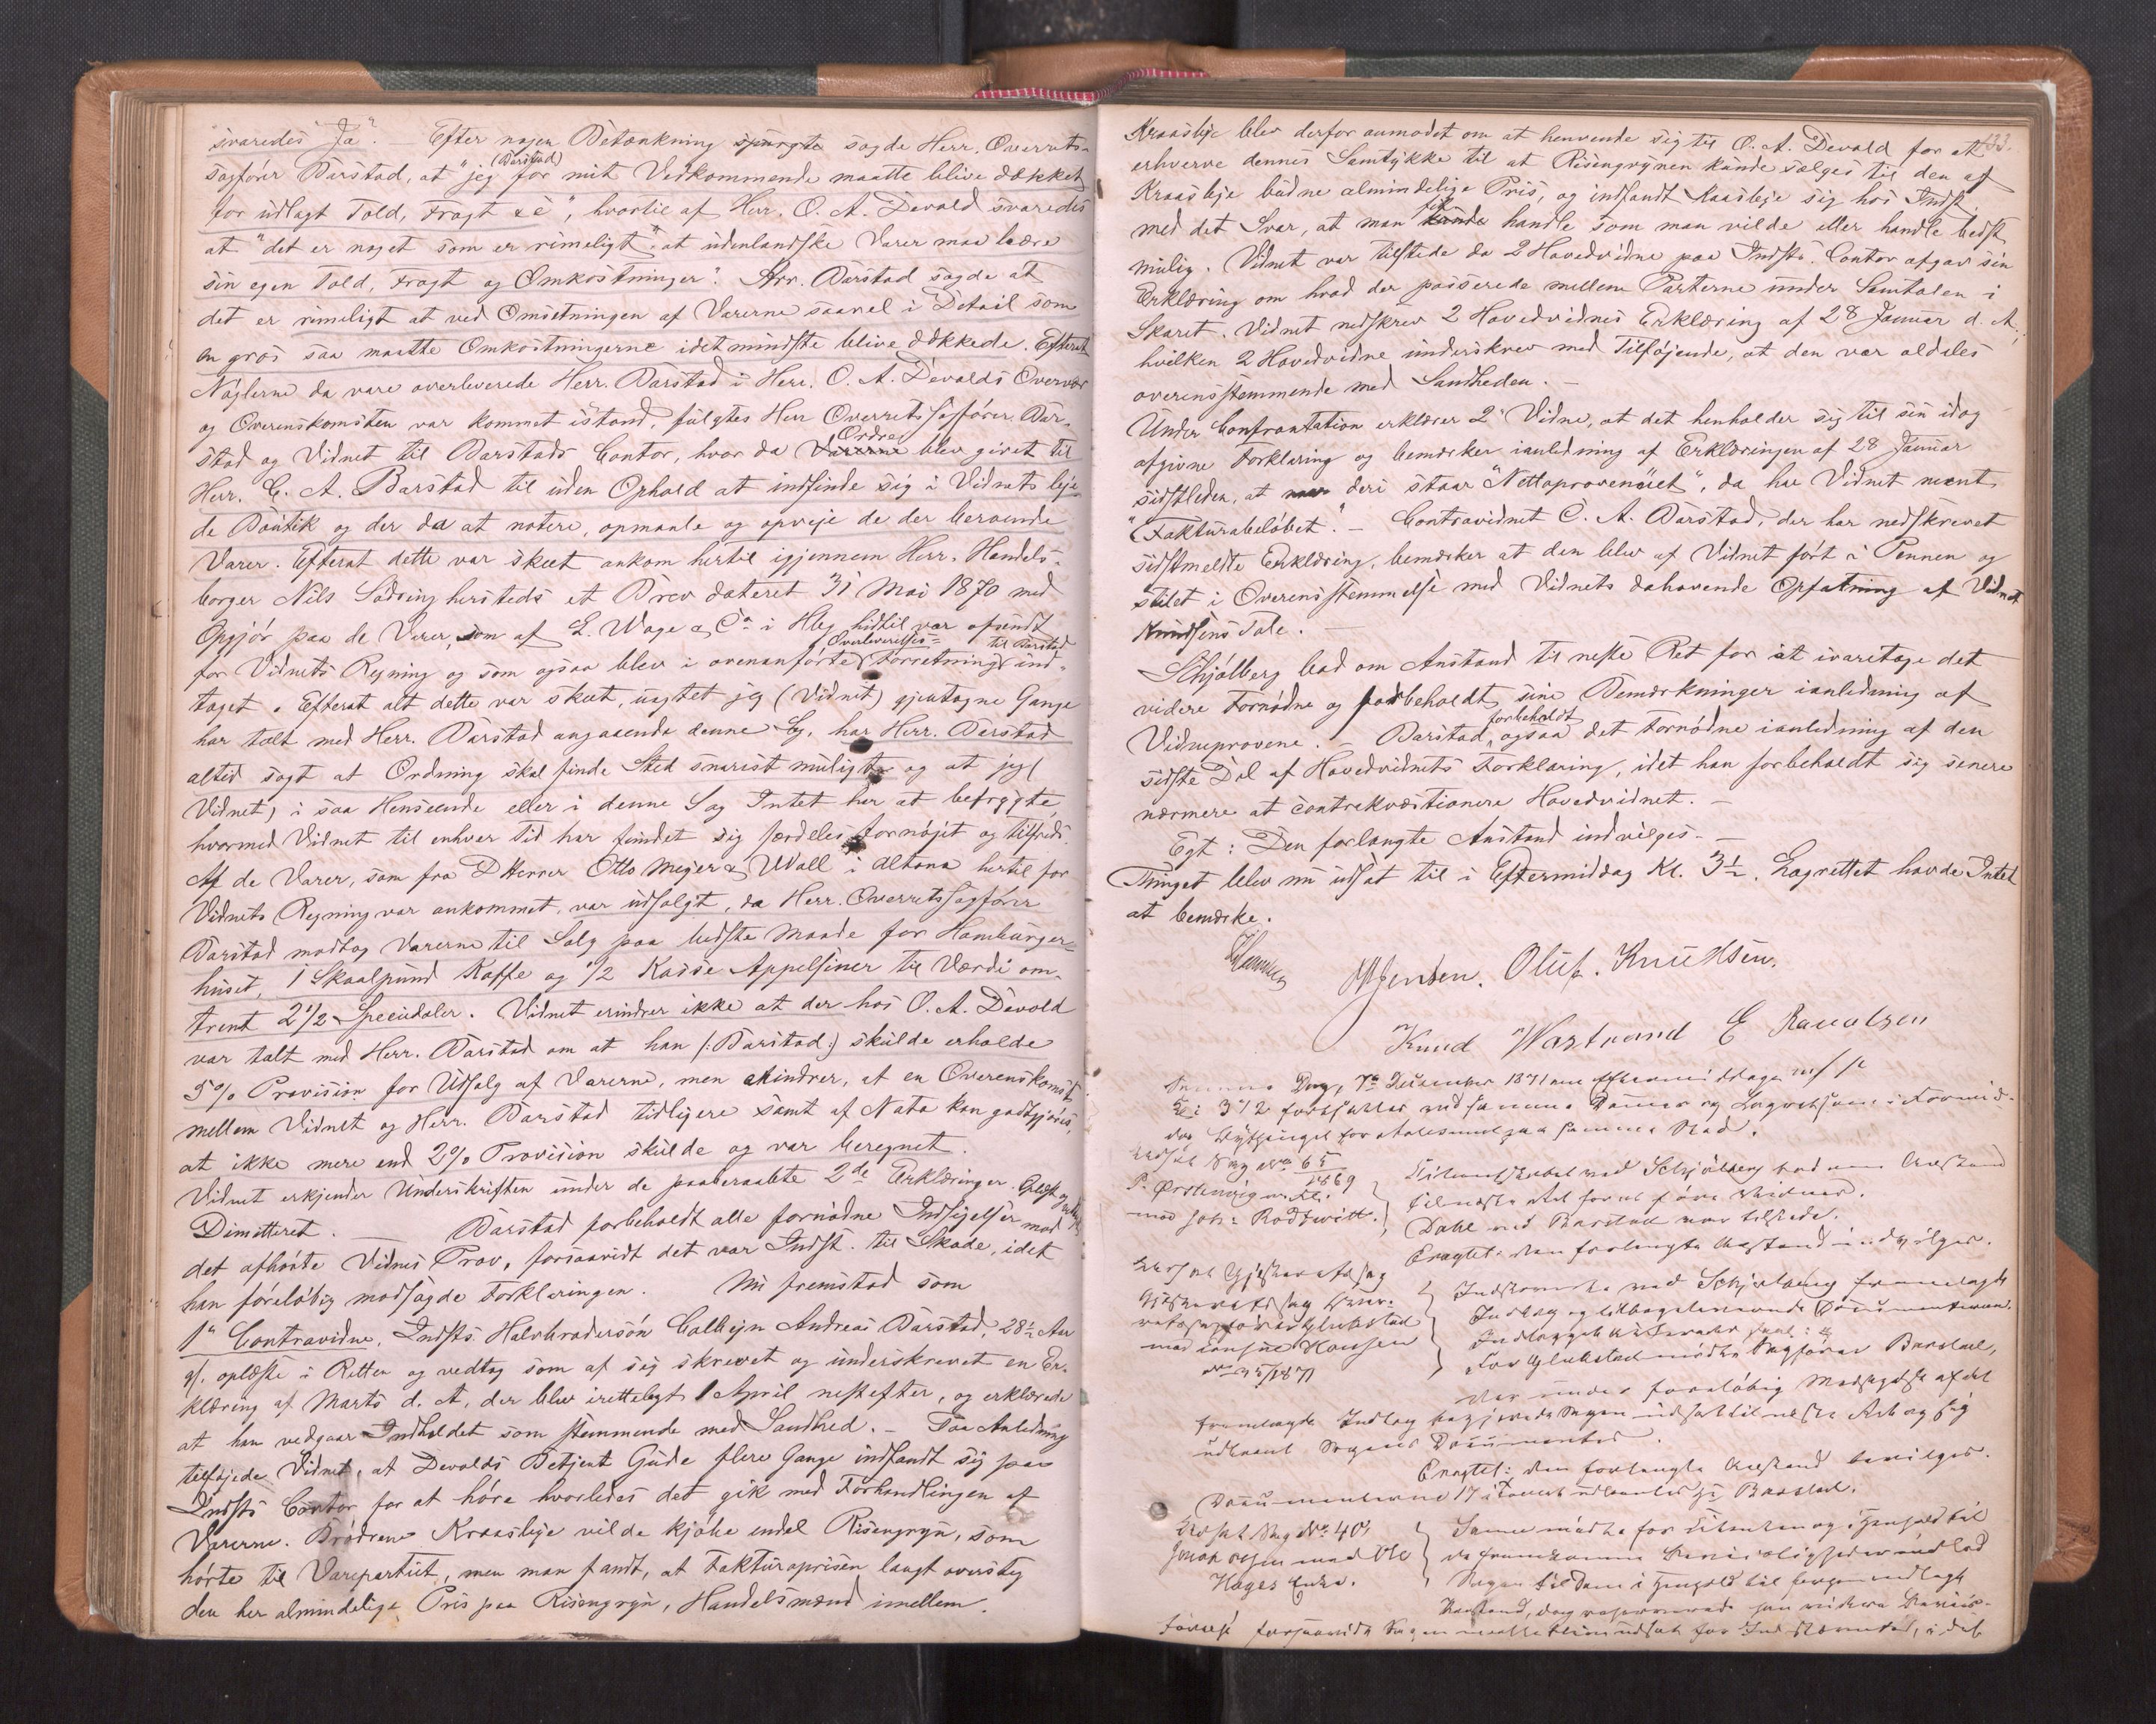 svaredes "Ja". – Efter nogen Betænkning spurgte sagde Herr. Overrets-
sagfører Barstad, at "jeg (Barstad) for mit Vedkommende maatte blive dækket
for udlagt Told, Fragt &c", hvortil af Herr. O. A. Devold svaredes
at "det er noget som er rimeligt", at udenlandske Varer maa bære
sin egen Told, Fragt og Omkostninger". Hrr. Barstad sagde at
det er rimeligt at ved Omsetningen af Varerne saavel i Detail som
en gros saa maatte Omkostningerne idetmindste blive dækkede. Efterat
Nøglerne da vare overleverede Herr. Barstad i Herr. O. A. Devolds Overvær
og Overenskomsten var kommet istand, fulgtes Herr Overretssagfører Bar-
stad og Vidnet til Barstads Contor, hvor da Varerne Ordre blev givet til
Herr. C. A. Barstad til uden Ophold at indfinde sig i Vidnets leje-
de Boutik og der da at notere, opmaale og opveje de der beroende
Varer. Efterat dette var skeet ankom hertil igjennem Herr. Handels-
borger Nils Sødring hersteds et Brev dateret 31 Mai 1870 med
Opgjør paa de Varer, som af L. Wage & Co i Hbg hidtil var afsendt
for Vidnets Regning og som ogsaa blev i ovenanførte Overleverelses- Forretning til Barstad ind-
taget. Efterat alt dette var skeet, uagtet jeg (Vidnet) gjentagne Gange
har talt med Herr. Barstad angaaende denne Sag, har Herr. Barstad
altid sagt at Ordning skal finde Sted snarest muligt og at jeg (
Vidnet) i saa Henseende eller i denne Sag Intet har at befrygte,
hvormed Vidnet til enhver Tid har fundet sig særdeles fornøjet og tilfreds.
Af de Varer, som fra DHerrer Otto Mejer & Wall i Altona hertil for
Vidnets Regning var ankommet, var udsolgt, da Herr. Overretssagfører
Barstad modtog Varerne til Salg paa bedste Maade for Hamburger-
huset, 1 Skaalpund Kaffe og 1/2 Kasse Appelsiner til Værdi om-
trent 2 1/2 Speciedaler. Vidnet erindrer ikke at der hos O. A. Devold
var talt med Herr. Barstad om at han (: Barstad :) skulde erholde
5% Provision for Udsalg af Varerne, men erindrer, at en Overenskomst
mellem Vidnet og Herr. Barstad tidligere samt af Nota kan godtgjøres,
at ikke mere end 2% Provision skulde og var beregnet.
Vidnet erkjender Underskriften under de paaberaabte 2de Erklæringer. Oplæst og
Dimitteret. — Barstad forbeholdt alle fornødne Indsigelser mod
det afhørte Vidnes Prov, forsaavidt det var Indst. til Skade, idet
han foreløbig modsagde Forklaringen. Nu fremstod som
1ste Contravidne, Indsts. Halvbrodersøn Colbejn Andreas Barstad, 28 1/2 Aar
gl. oplæste i Retten og vedtog som af sig skrevet og underskrevet en Er-
klæring af Marts d. A, der blev irettelagt 1 April nestefter, og erklærede
at han vedgaar Indholdet som stemmende med Sandhed. – Paa Anledning
tilføjede Vidnet, at Devolds Betjent Gude flere Gange indfandt sig paa
Indsts Contor for at høre hvorledes det gik med Forhandlingen af
Varerne. Brødrene Kraasbye vilde kjøbe endel Risengryn, som
hørte til Varepartiet, men man fandt, at Fakturaprisen langt oversteg
den her almindelige Pris paa Risengryn, Handelsmænd imellem.
133.
Kraasbye blev derfor anmodet om at henvende sig til O. A. Devold for at
erhverve dennes Samtykke til at Risengrynen kunde sælges til den af
Kraasbye budne almindelige Pris, og indfandt Kraasbye sig hos Indst.
med det Svar, at man kunde fik handle som man vilde eller handle bedst
mulig. Vidnet var tilstede da 2 Hovedvidne paa Indsts. Contor afgav sin
Erklæring om hvad der passerede mellem Parterne under Samtalen i
Skaret. Vidnet nedskrev 2 Hovedvidnes Erklæring af 28 Januar d. A.,
hvilken 2 Hovedvidne underskrev med Tilføjende, at den var aldeles
overensstemmende med Sandheden. –
Under Confrontation erklærer 2 Vidne, at det henholder sig til sin idag
afgivne Forklaring og bemærker ianledning af Erklæringen af 28 Januar
sidstleden, at deri staar "Nettoprovenuet", da har Vidnet ment
"Fakturabeløbet". – Contravidnet C. A. Barstad, der har nedskrevet
sidstmeldte Erklæring, bemærker at den blev af Vidnet ført i Pennen og
stilet i Overensstemmelse med Vidnets dahavende Opfatning af Vidnet
Knudsens Tale.
Schjølberg bad om Anstand til neste Ret for at ivaretage det
videre Fornødne og forbeholdt sine Bemærkninger ianledning af
Vidneprovene. – Barstad forbeholdt ogsaa det Fornødne ianledning af den
sidste Del af Hovedvidnets Forklaring, idet han forbeholdt sig senere
nærmere at contrakvæstionere Hovedvidnet. –
Egt: Den forlangte Anstand indvilges. –
Thinget blev nu udsat til i Eftermiddag Kl. 3 1/2. Lagrettet havde Intet
at bemærke.
Jensen. Oluf. Knudtsen.
Knud Wastrand E Ravalsen
Samme Dag, 7de December 1871 om Eftermiddagen
Kl 3 1/2 fortsattes ved samme Dommer og Lagrettsmænd i Formid-
paa samme Sted.
Sag No 65/1869
P. Ørstenvig
mod Joh: Roddwitt.
Schjølberg bad om Anstand
til næste Ret for at føre Vidner.
Dahl ved Barstad var tilstede.
Eragtet: den forlangte Anstand indvilges.
Gjæsteretssag
Glukstad
mod Hansen
No 35/1871
ved Schjølberg fremlagde
Indlæg og tilbageleverede Documenterne.
For Glukstad mødte Sagfører Barstad,
der under foreløbig Modsigelse af det
fremlagde Indlæg begjærede Sagen udsat til næste Ret og sig
udlaant Sagens Documenter.
Eragtet: den forlangte Anstand bevilges.
Documenterne udlaantes Barstad.
Sag No. 40/
mod Ole
Hages Enke.
Samme mødte for
Sagen
Anstand,
Sagen